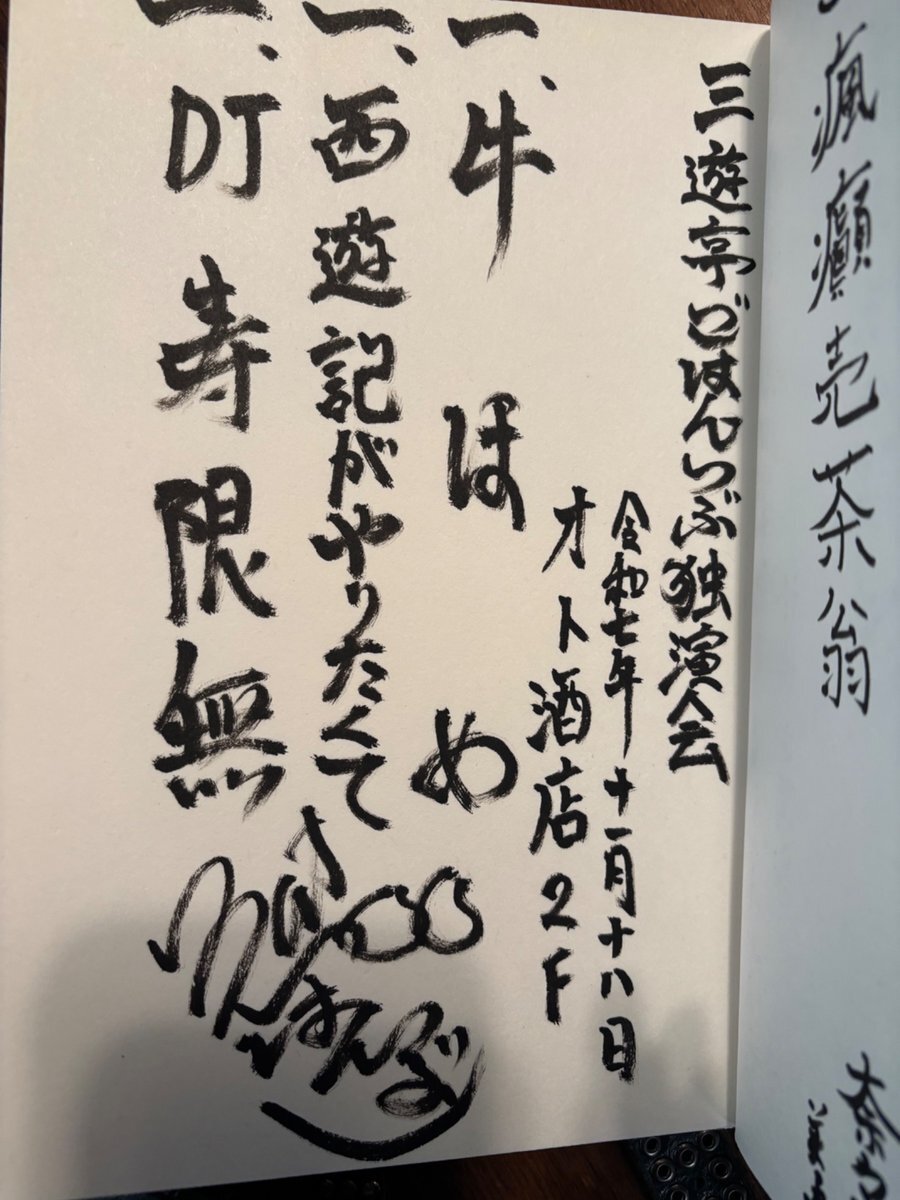 瘋癲売茶翁
三遊亭ごはんつぶ独演会
令和七年十一月十八日
オト酒店2F
一、牛ほめ
一、西遊記がやりたくて
一、DJ寿限無